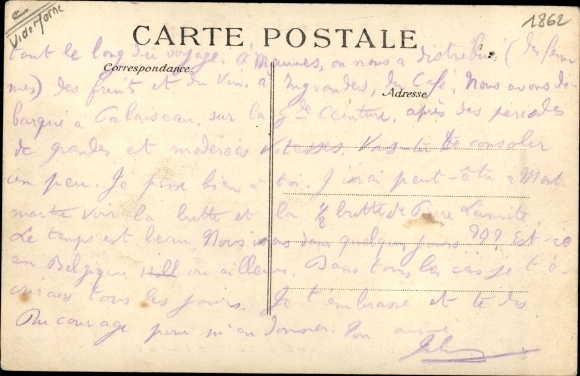 Vidortorne
1862
CARTE POSTALE
tout le long du voyage. A on nous a distribué (des fem
Correspondance
mes) des fruits et du vin, à Ingrandes, du Café. Nous avons dé
Adresse
barqué à Palaiseau, sur la gde Ceinture, après des périodes
de grandes et modérées vitesses. Vas-tu te consoler
un peu. Je pense bien à toi. J'irai peut-être à Mont
martre voir la butte et la butte de
Le temps est beau. Nous dans quelques jours ??? Est-ce
en Belgique ou ailleurs. Dans tous les cas je t'é
crirai tous les jours. Je t'embrasse et te dis
Du courage pour m'en donner. Ton